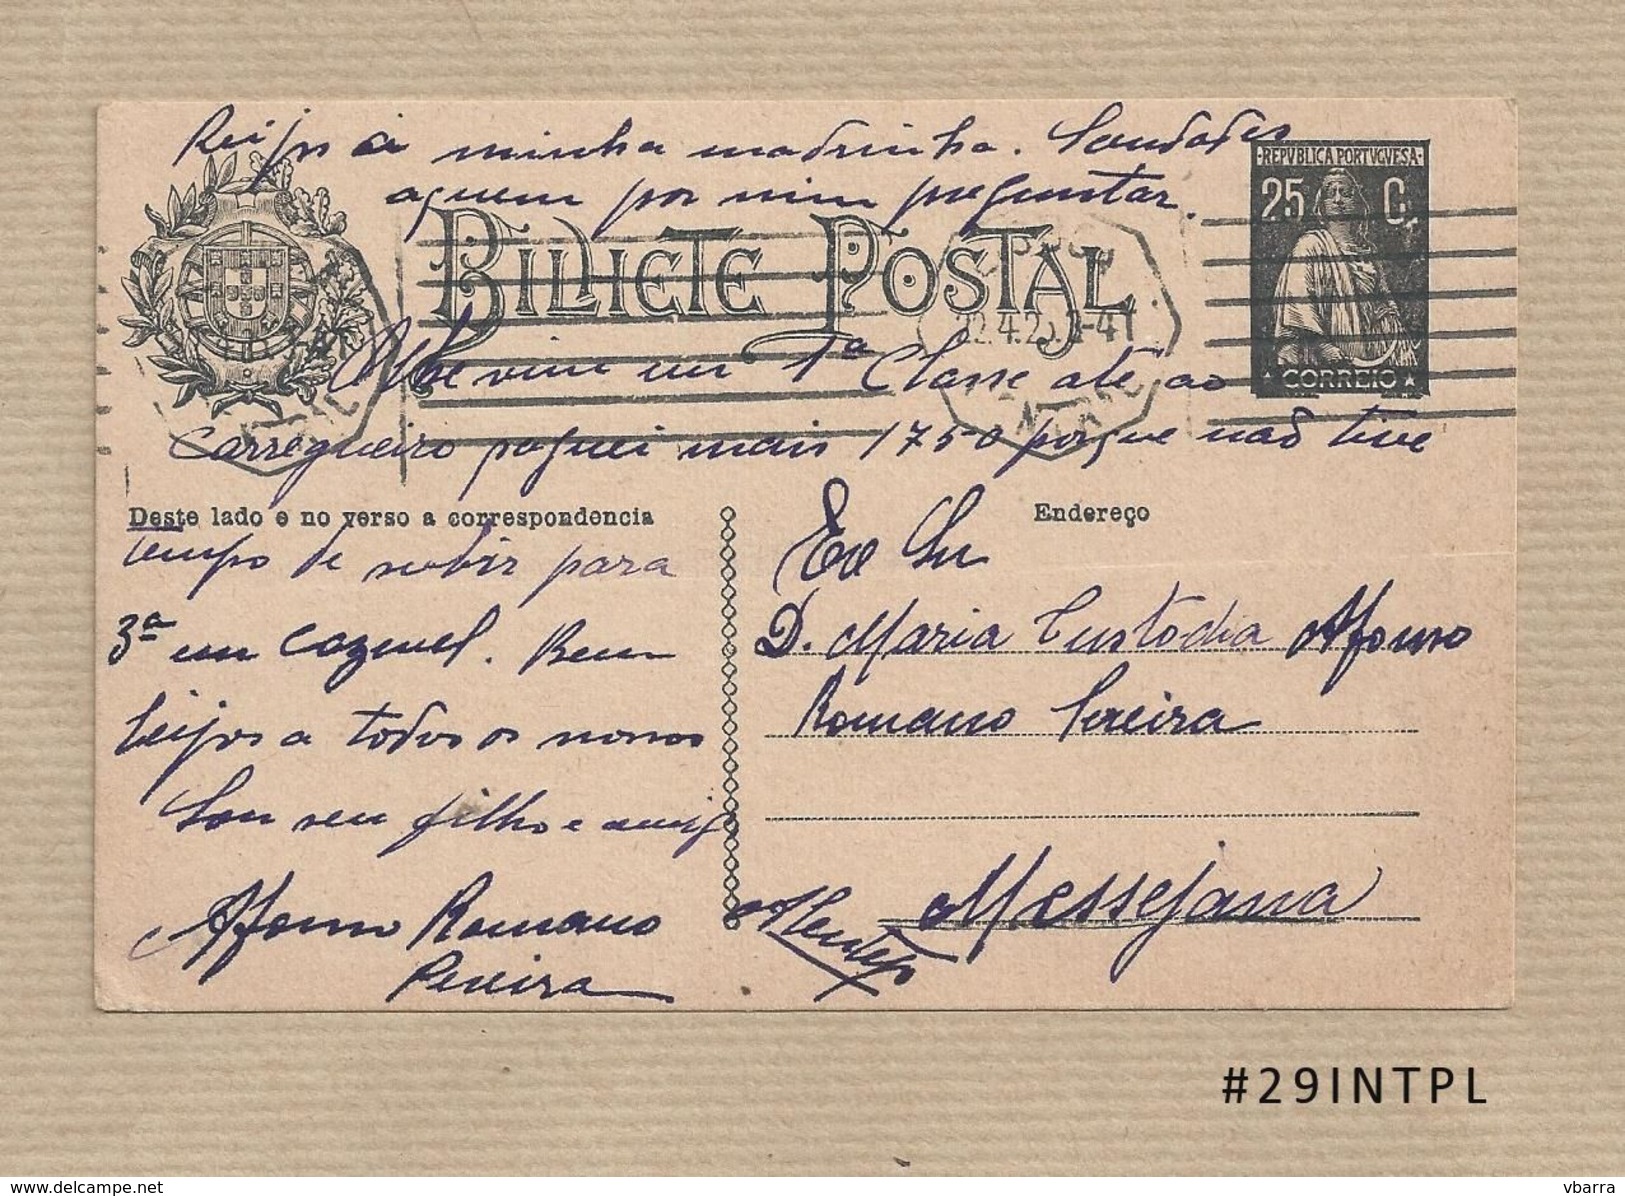 Beijos á minha madrinha. Saudades
aquem por mim preguntar.
REPVBLICA PORTVGVESA
25 C.
CORREIO
BILHETE POSTAL
22.4.2
vim em 1ª Classe até ao
Carregueiro paguei mais 17$50 porque não tive
Deste lado e no verso a correspondencia
tempo de subir para
3ª em Cazevel. Bem
beijos a todos os nossos
Sou seu filho e amigo
Afonso Romano
Pereira
Endereço
Exª Snrª
D. Maria Custódia Afonso
Romano Pereira
Messejana
Alentejo
#29INTPL
delcampe.net
vbarra